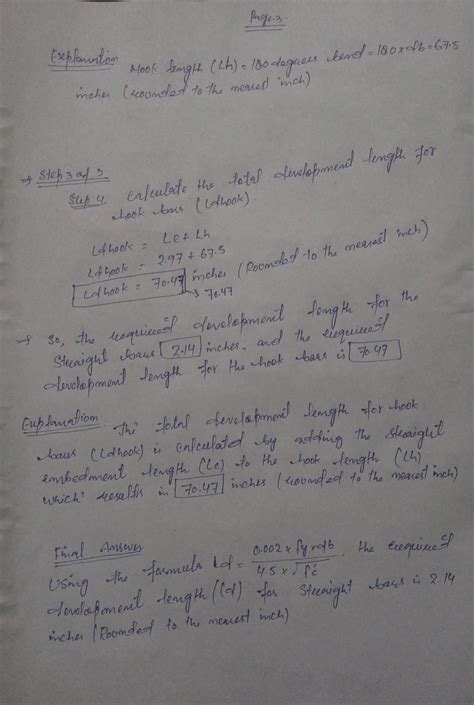 Page-3.
Explanation Hook length (Lh) = 180 degrees bend = 180 x db = 67.5
inches (rounded to the nearest inch)
→ Step 3 of 3
Step 4. Calculate the total development length for
hook bars (Ldhook).
Ldhook = Le + Lh
Ldhook = 2.97 + 67.5
Ldhook = 70.47 inches (Rounded to the nearest inch)
→ 70.47
→ So, the required development length for the
Straight bars 2.14 inches. and the required
development length for the hook bars is 70.47
Explanation. The total development length for hook
bars (Ldhook) is calculated by adding the straight
embedment length (Le) to the hook length (Lh)
which results in 70.47 inches (rounded to the nearest inch)
Final Answer
Using the formula Ld = 0.002 x fy x db / 4.5 x √f'c . the required
development length (ld) for straight bars is 2.14
inches (Rounded to the nearest inch)